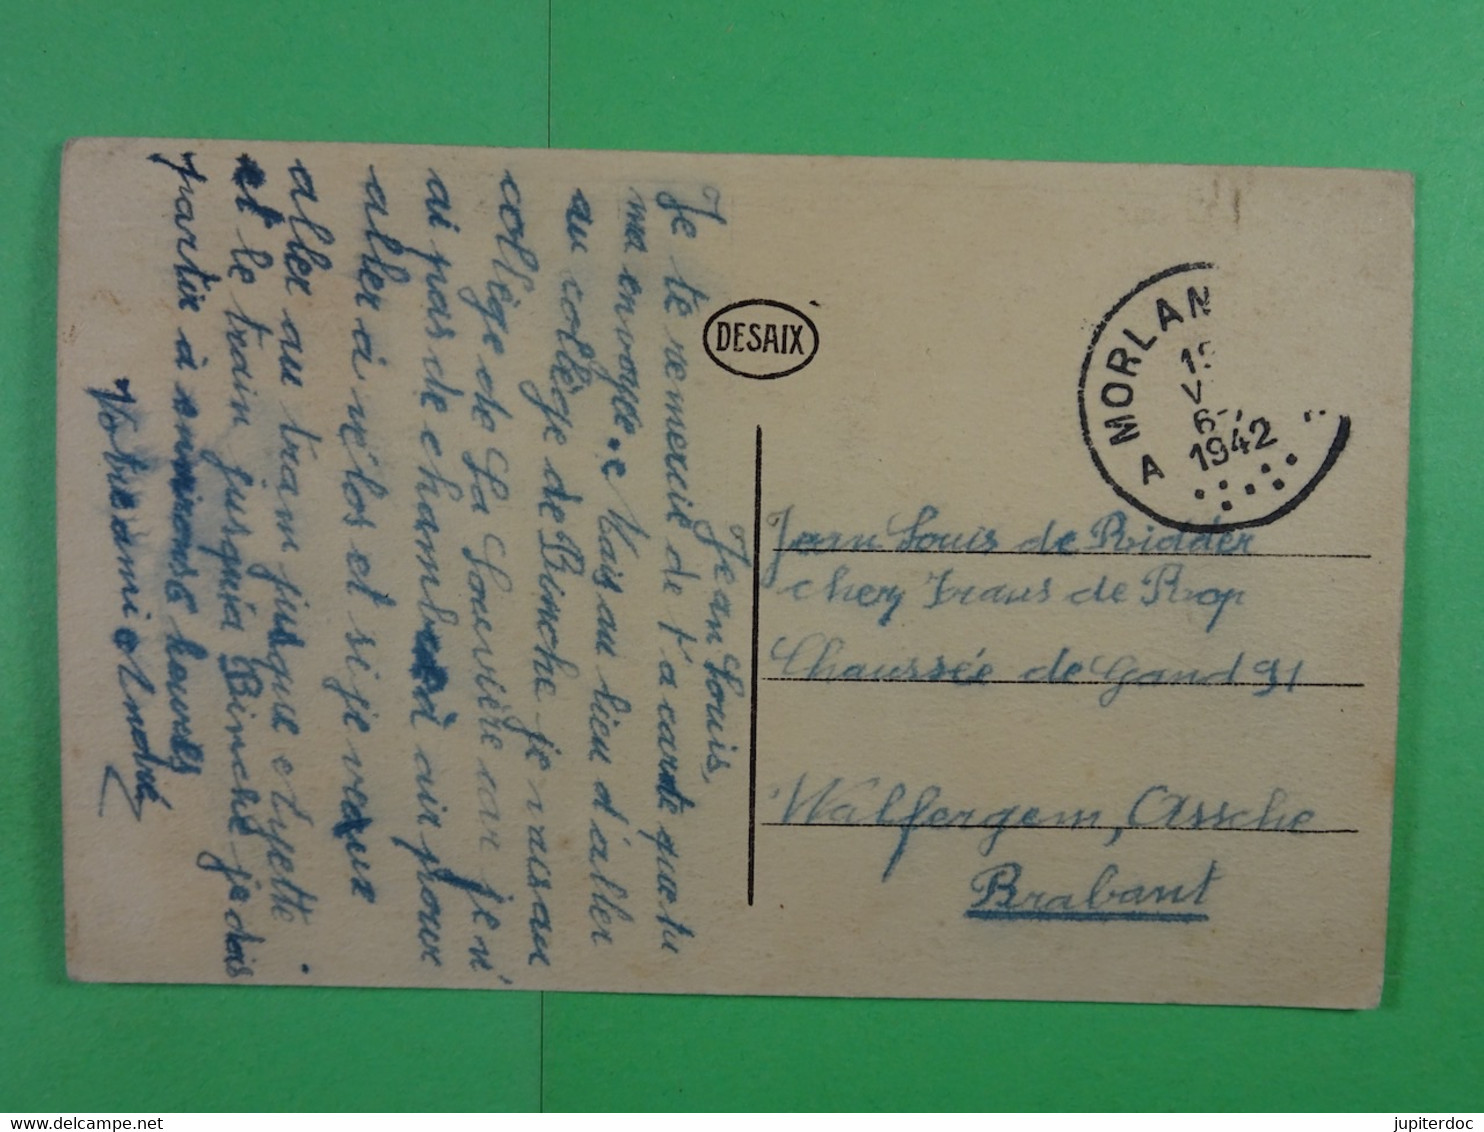 Jean Louis,
Je te remercie de t'a carte que tu
ma envoyée. Mais au lieu d'aller
au collège de Binche je vais au
collège de La Louvière car je n'
ai pas de chambre à air pour
aller à vélos et si je veux
aller au tram jusque
et le train jusqu'à Binche je dois
partir à environs 6 heures
Votre ami André
DESAIX
A MORLAN
1942
Jean Louis de Ridder
chez Frans de Prop
Chaussée de Gand 91
Walfergem, Assche
Brabant
jupiterdoc
www.delcampe.net